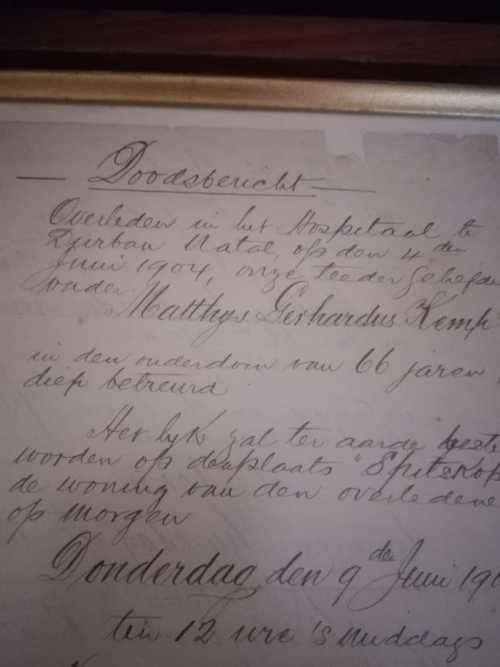 Doodsbericht
Overleden in het Hospitaal te
Durban Natal, op den 4 den
Juni 1904, onze teeder geliefde
vader
Matthys Gerhardus Kemp
in den ouderdom van 66 jaren
diep betreurd
Het lyk zal ter aarde beste
worden op de plaats "Spitskop
de woning van den overledene
op morgen
Donderdag den 9 den Juni 190
ten 12 ure 's middags